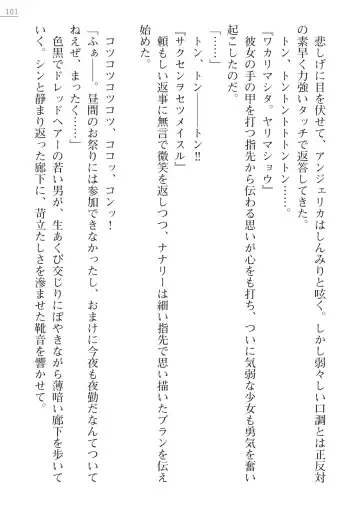 101
悲しげに目を伏せて、アンジェリカはしんみりと呟く。しかし弱々しい口調とは正反対
の素早く力強いタッチで返答してきた。
トン、トントントトントン……。
『ワカリマシタ。ヤリマショウ』
彼女の手の甲を打つ指先から伝わる思いが心を打ち、ついに気弱な少女も勇気を奮い
起こしたのだ。
「……」
トン、トン――トン!!
『サクセンヲセツメイスル』
頼もしい返事に無言で微笑を返しつつ、ナナリーは細い指先で思い描いたプランを伝え
始めた。
コツコツコツコツ、ココッ、コンッ!
「ふぁ――。昼間のお祭りには参加できなかったし、おまけに今夜も夜勤だなんてついて
ねえぜ、まったく……」
色黒でドレッドヘアーの若い男が、生あくび交じりにぼやきながら薄暗い廊下を歩いて
いく。シンと静まり返った廊下に、苛立たしさを滲ませた靴音を響かせて。